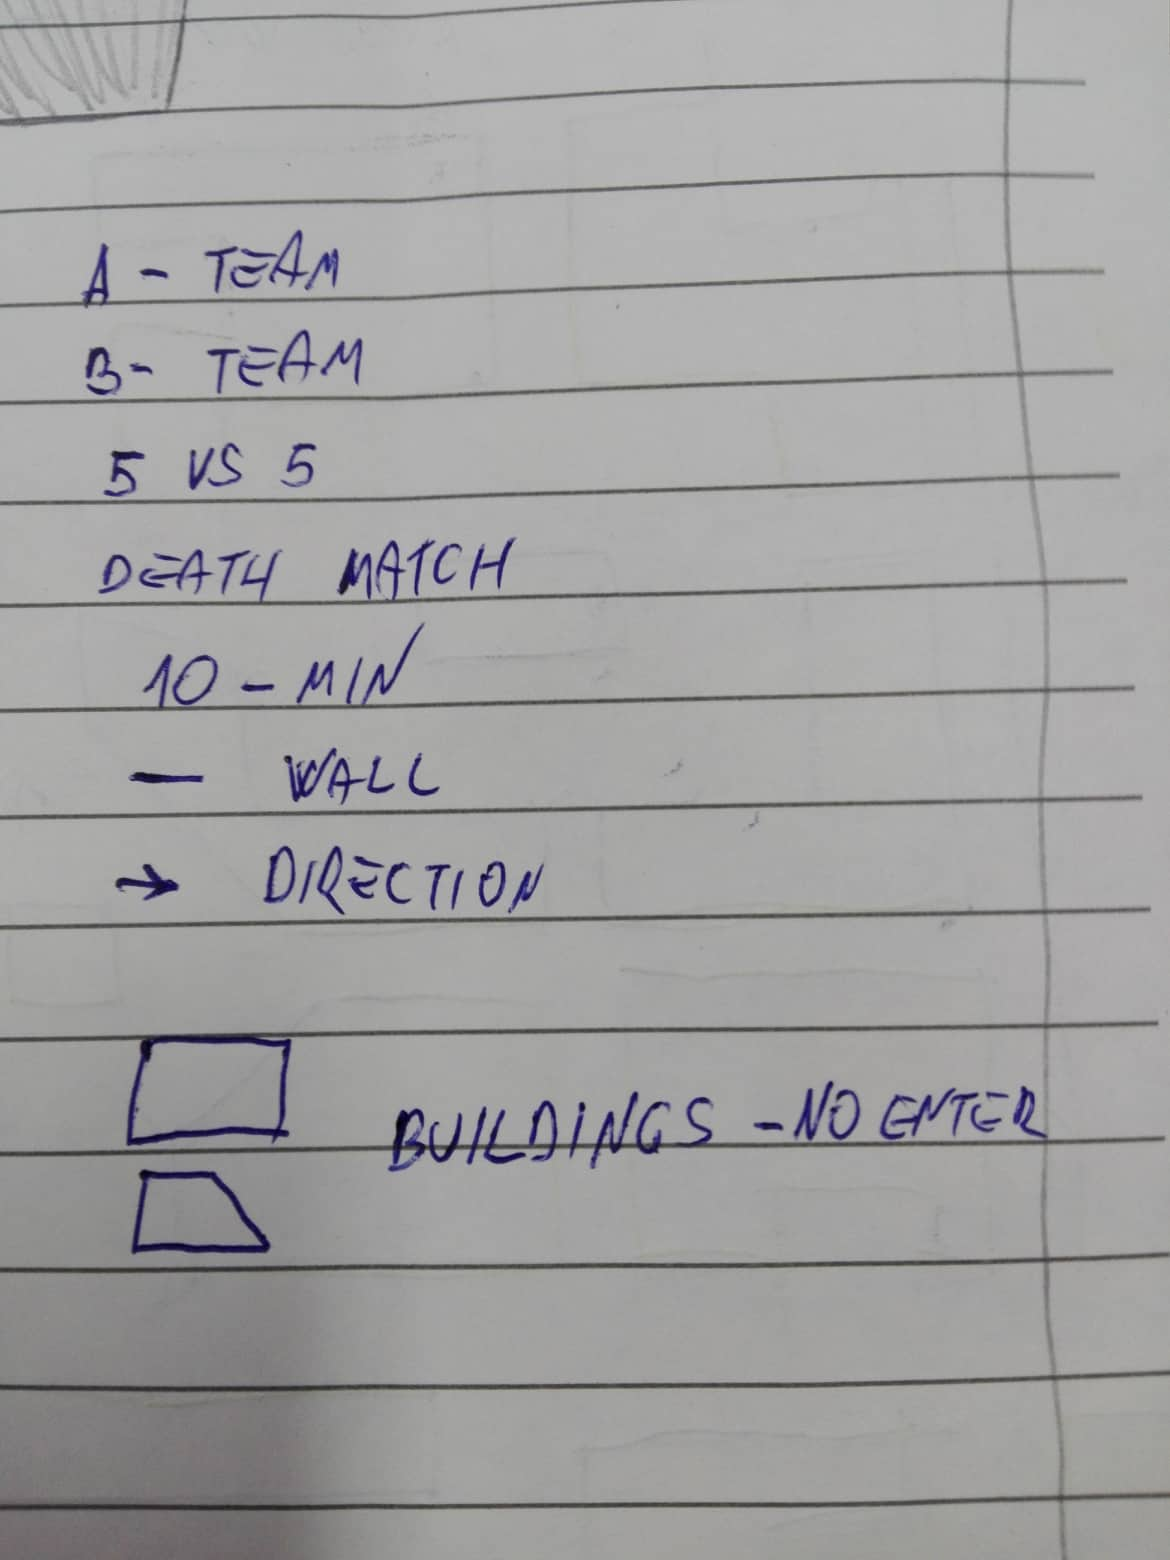 A - TEAM
B- TEAM
5 VS 5
DEATH MATCH
10 - MIN
— WALL
→ DIRECTION
BUILDINGS - NO ENTER